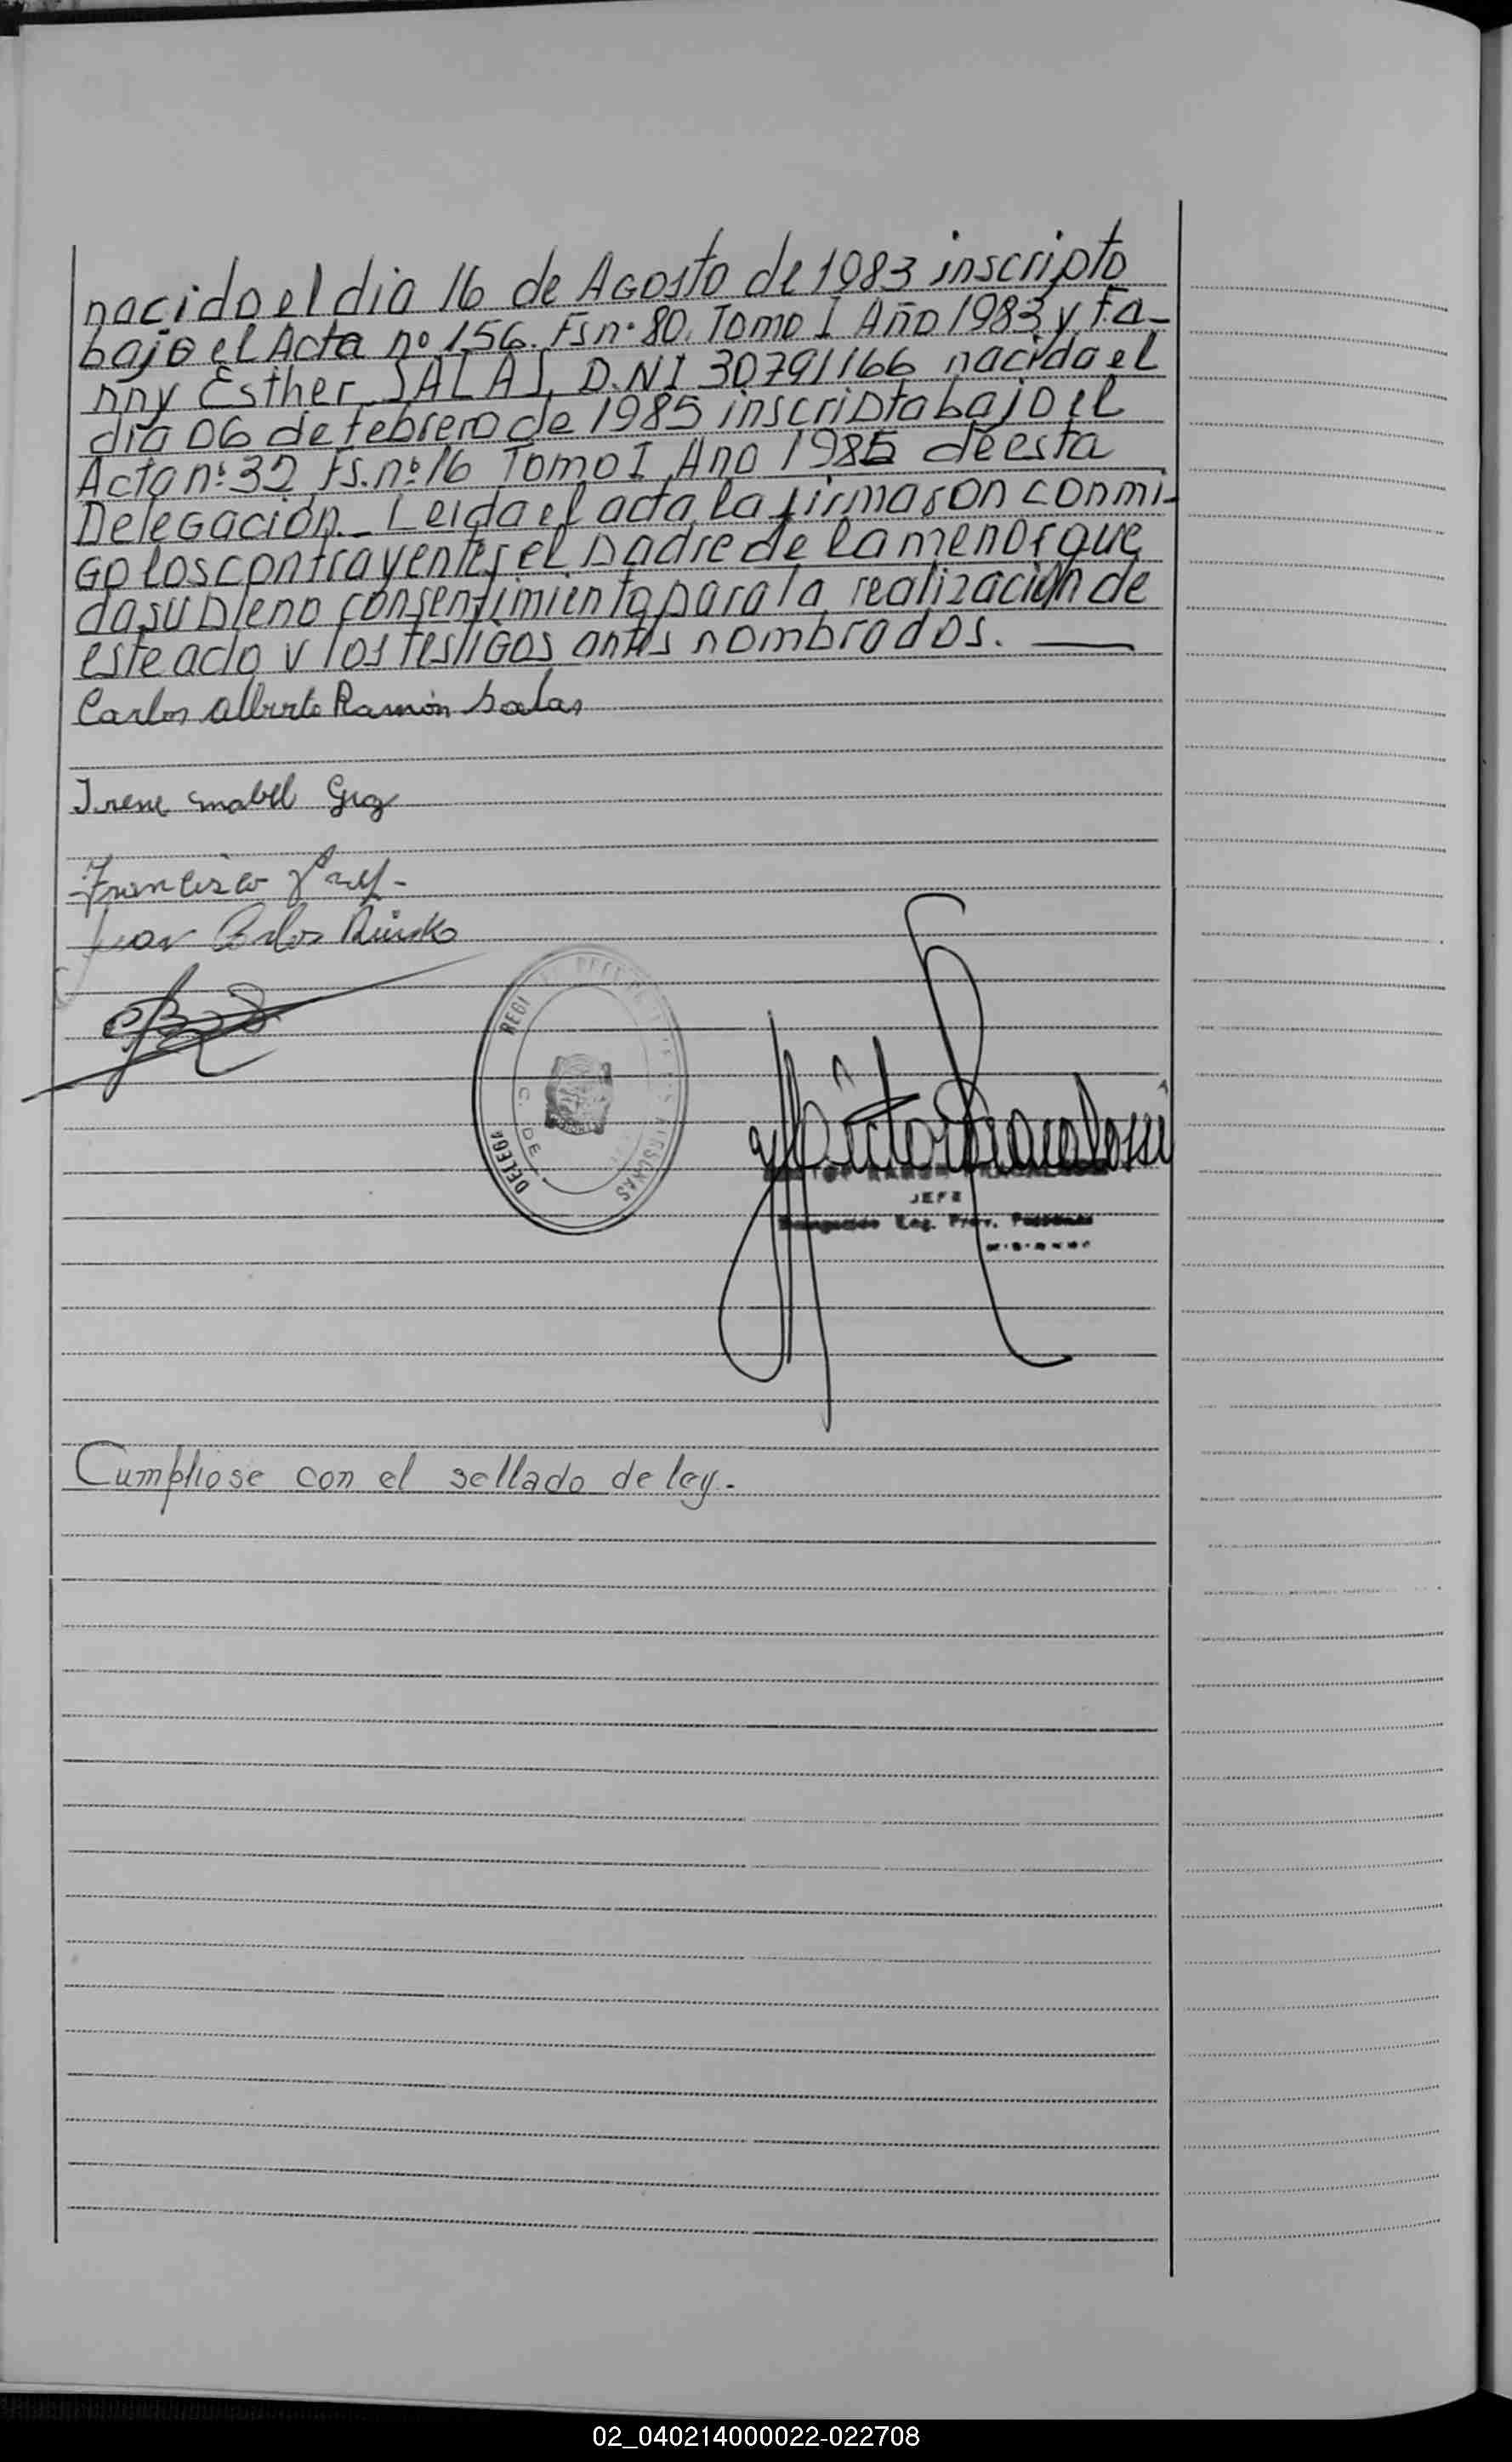 nacido el dia 16 de Agosto de 1983 inscripto
bajo el Acta nº 156. Fs nº 80. Tomo I Año 1983 y Fa-
nny Esther SALAS, D.NI 30791166 nacida el
dia 06 de febrero de 1985 inscripta bajo el
Acta nº 32 Fs. nº 16 Tomo I Año 1985 de esta
Delegación._ Leida el acta, la firmaron conmi-
go los contrayentes el padre de la menor que
da su pleno consentimiento para la realización de
este acto y los testigos antes nombrados.
Carlos Alberto Ramón Salas
Irene Mabel
Francisco
Juan Carlos
REGI
DELEGA
C. DE
JEFE
Reg. Prov. Personas
Cumpliose con el sellado de ley.-
02_040214000022-022708